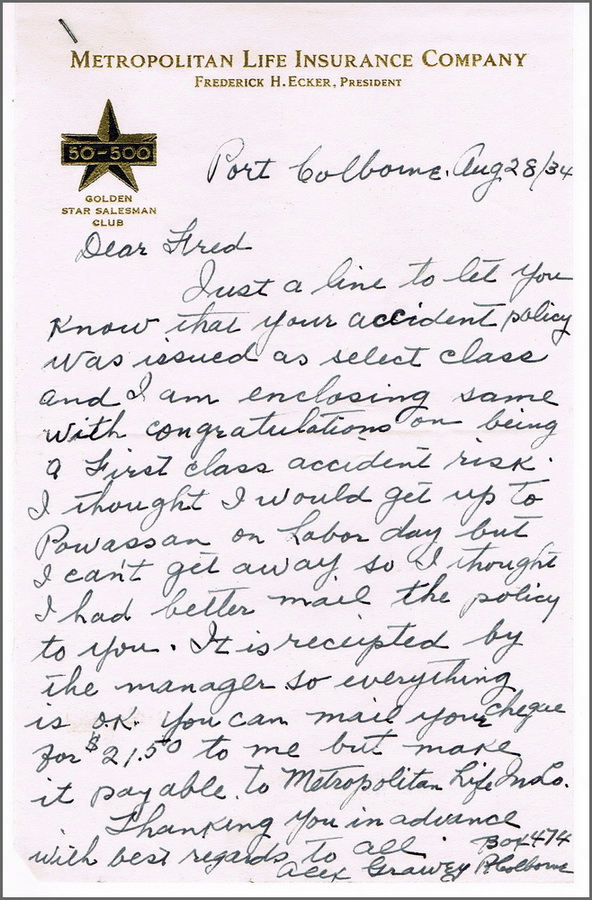 METROPOLITAN LIFE INSURANCE COMPANY
FREDERICK H. ECKER, PRESIDENT
50-500
GOLDEN
STAR SALESMAN
CLUB
Port Colborne. Aug 28/34
Dear Fred
Just a line to let you
know that your accident policy
was issued as select class
and I am enclosing same
with congratulations on being
a First class accident risk.
I thought I would get up to
Powassan on Labor day but
I can't get away so I thought
I had better mail the policy
to you. It is receipted by
the manager so everything
is O.K. You can mail your cheque
for $21.50 to me but make
it payable to Metropolitan Life In Co.
Thanking you in advance
with best regards to all.
Alex
Box 474
P. Colborne